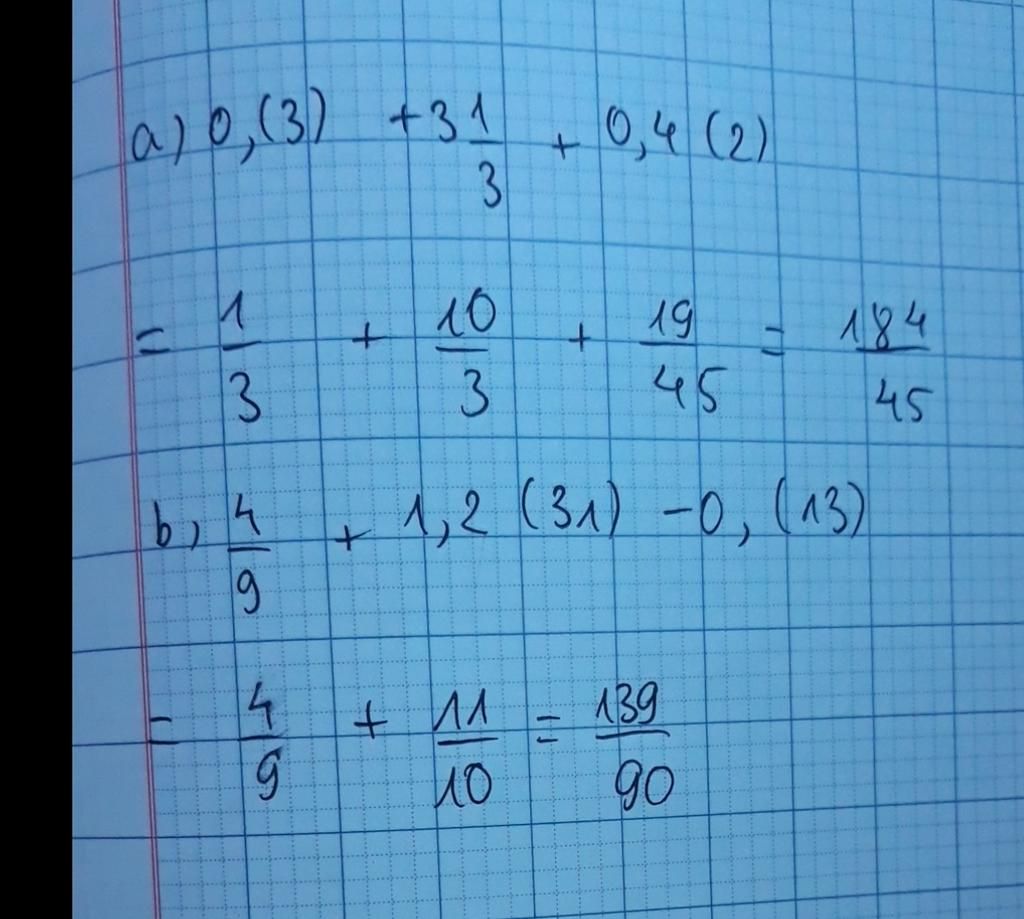 a) 0,(3) + 3 1/3 + 0,4 (2)
= 1/3 + 10/3 + 19/45 = 184/45
b, 4/9 + 1,2 (31) - 0, (13)
= 4/9 + 11/10 = 139/90